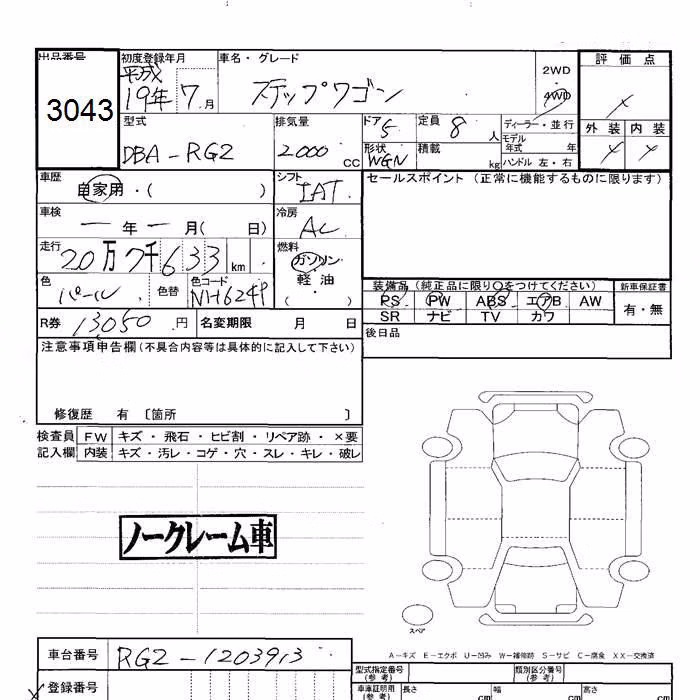 出品番号
3043
初度登録年月
平成
19年 7月
車名・グレード
ステップワゴン
2WD
4WD
評価点
外装 内装
型式
DBA-RG2
排気量
2000cc
ドア
5
形状
WGN
定員
8人
積載
kg
ディーラー・並行
モデル年式 年
ハンドル 左・右
車歴
自家用・( )
シフト
IAT
セールスポイント (正常に機能するものに限ります)
車検
ー年ー月( 日)
冷房
AC
走行
20万7千633km
燃料
ガソリン
軽油
( ・ )
色
パール
色替
色コード
NH624P
装備品(純正品に限り〇をつけてください)
PS PW ABS エアB AW
SR ナビ TV カワ
新車保証書
有・無
R券 13050円
名変期限 月 日
後日品
注意事項申告欄(不具合内容等は具体的に記入して下さい)
修復歴 有 〔箇所 〕
検査員記入欄
FW キズ・飛石・ヒビ割・リペア跡・×要
内装 キズ・汚レ・コゲ・穴・スレ・キレ・破レ
ノークレーム車
スペア
A-キズ E-エクボ U-凹み W-補修跡 S-サビ C-腐食 XX-交換済
車台番号
RG2-1203913
登録番号
型式指定番号(参考)
類別区分番号(参考)
車庫証明用(参考)
長さ cm
幅 cm
高さ cm